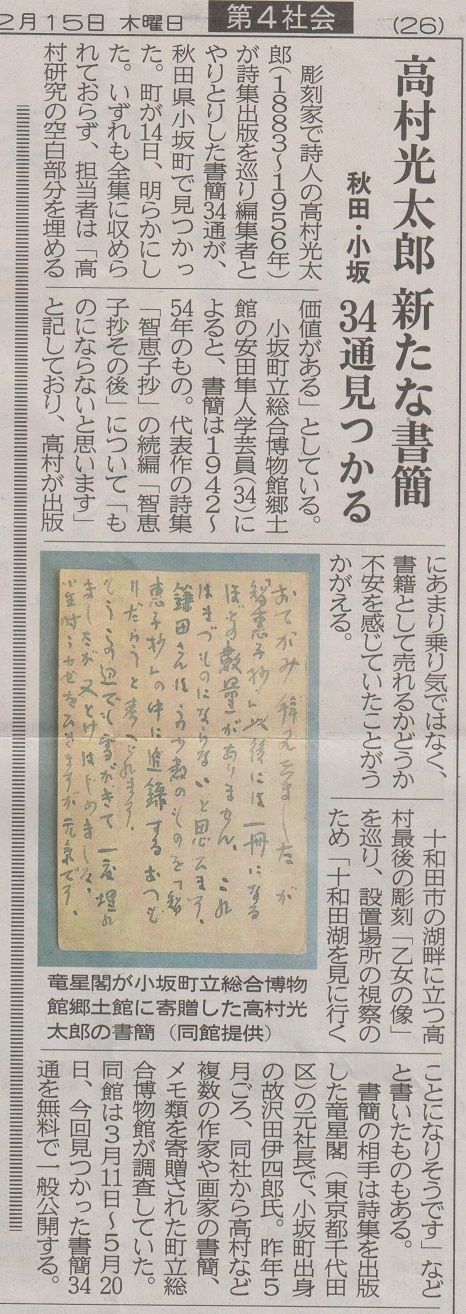 2月15日 木曜日
第4社会
(26)
高村光太郎 新たな書簡
秋田・小坂 34通見つかる
彫刻家で詩人の高村光太
郎(1883〜1956年)
が詩集出版を巡り編集者と
やりとりした書簡34通が、
秋田県小坂町で見つかっ
た。町が14日、明らかにし
た。いずれも全集に収めら
れておらず、担当者は「高
村研究の空白部分を埋める
価値がある」としている。
小坂町立総合博物館郷土
館の安田隼人学芸員(34)に
よると、書簡は1942〜
54年のもの。代表作の詩集
「智恵子抄」の続編「智恵
子抄その後」について「も
のにならないと思います」
と記しており、高村が出版
にあまり乗り気ではなく、
書籍として売れるかどうか
不安を感じていたことがう
かがえる。
十和田市の湖畔に立つ高
村最後の彫刻「乙女の像」
を巡り、設置場所の視察の
ため「十和田湖を見に行く
ことになりそうです」など
と書いたものもある。
書簡の相手は詩集を出版
した竜星閣(東京都千代田
区)の元社長で、小坂町出身
の故沢田伊四郎氏。昨年5
月ごろ、同社から高村など
複数の作家や画家の書簡、
メモ類を寄贈された町立総
合博物館が調査していた。
同館は3月11日〜5月20
日、今回見つかった書簡34
通を無料で一般公開する。
おてがみ拝見しましたが
「智恵子抄」以後には一冊になる
ほどの数量がありません、これ
はまづものにならないと思ひます、
鎌田さんは少数のものを「智
恵子抄」の中に追録するおつも
りだらうと考へられます、
もうこの辺でも雪がきて一度埋れ
ましたが又とけはじめました、
小生時々かぜをひきますが元気です、
竜星閣が小坂町立総合博物
館郷土館に寄贈した高村光
太郎の書簡(同館提供)